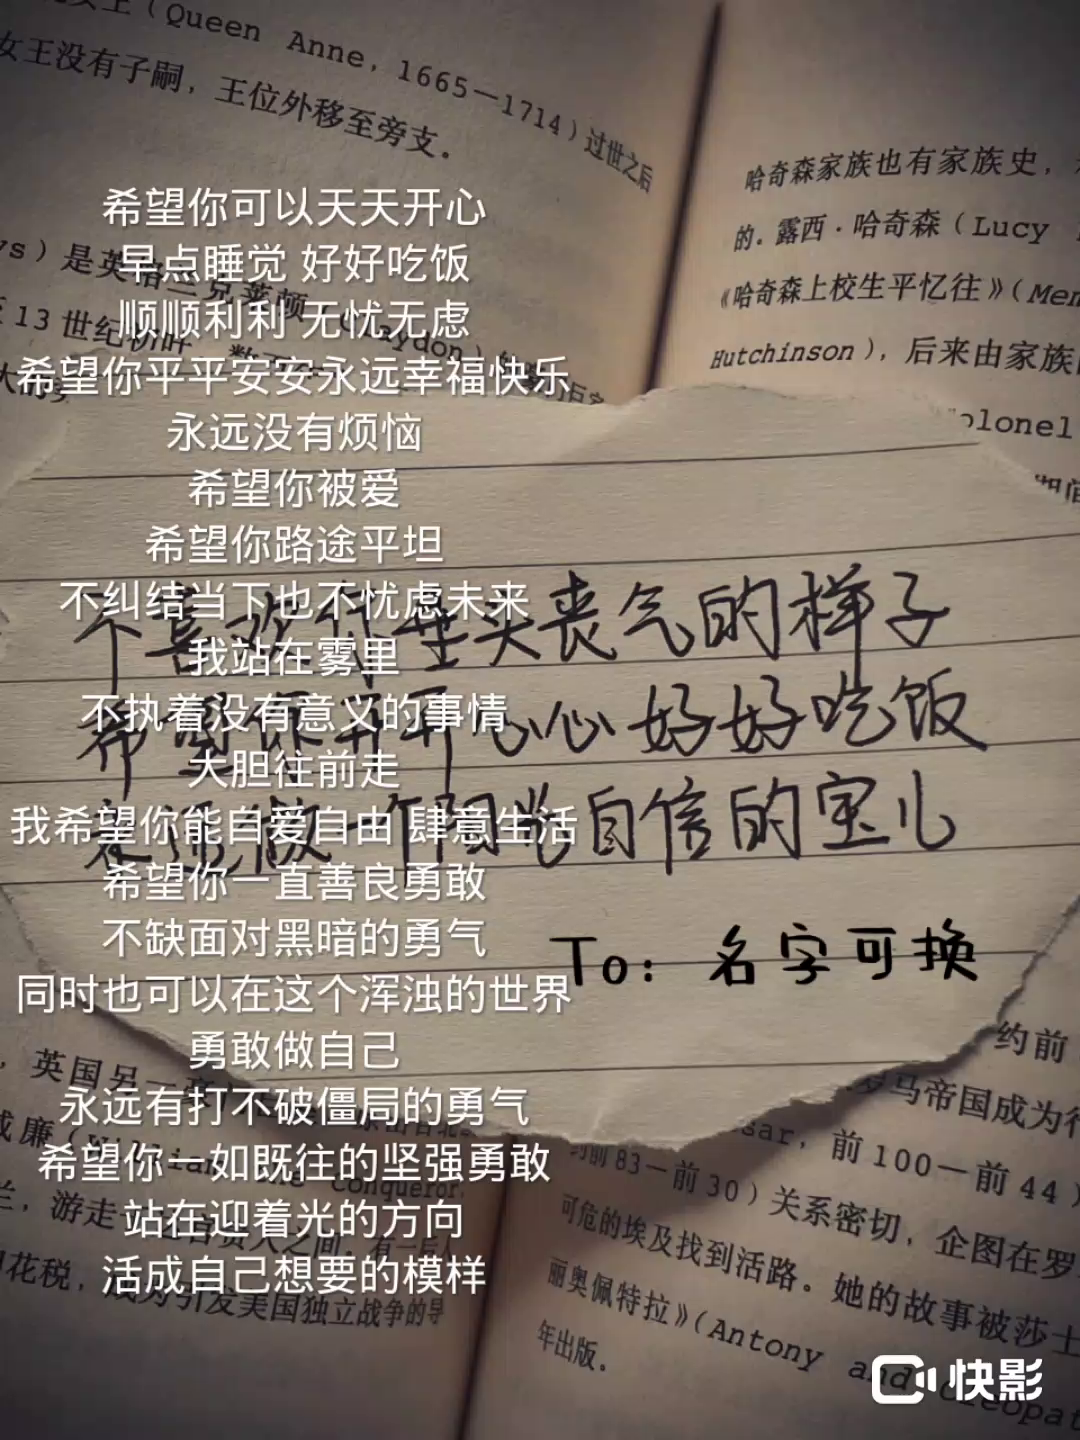 希望你可以天天开心
早点睡觉 好好吃饭
顺顺利利 无忧无虑
希望你平平安安永远幸福快乐
永远没有烦恼
希望你被爱
希望你路途平坦
不纠结当下也不忧虑未来
我站在雾里
不执着没有意义的事情
大胆往前走
我希望你能自爱自由 肆意生活
希望你一直善良勇敢
不缺面对黑暗的勇气
同时也可以在这个浑浊的世界
勇敢做自己
永远有打不破僵局的勇气
希望你一如既往的坚强勇敢
站在迎着光的方向
活成自己想要的模样
不喜欢你垂头丧气的样子
希望你开开心心好好吃饭
永远做一个阳光自信的宝儿
To: 名字可换
(Queen Anne, 1665—1714) 过世之后
女王没有子嗣，王位外移至旁支。
是英格兰克莱顿 (Claydon)
13 世纪初叶
英国另一
威廉 (William the Conqueror
游走
花税，成为引发美国独立战争的导
哈奇森家族也有家族史，
的. 露西·哈奇森 (Lucy
《哈奇森上校生平忆往》(Mem
Hutchinson), 后来由家族
olonel
期间
约前
罗马帝国成为行
sar, 前 100—前 44)
约前 83—前 30) 关系密切，企图在罗
可危的埃及找到活路。她的故事被莎士
丽奥佩特拉》(Antony and Cleopat
年出版。
快影